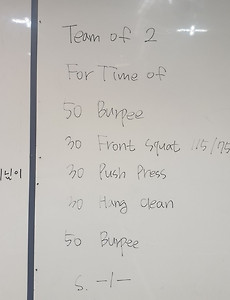 Team of 2
For Time of
50 Burpee
30 Front Squat 115/75
30 Push Press
30 Hang clean
50 Burpee
S. -/-